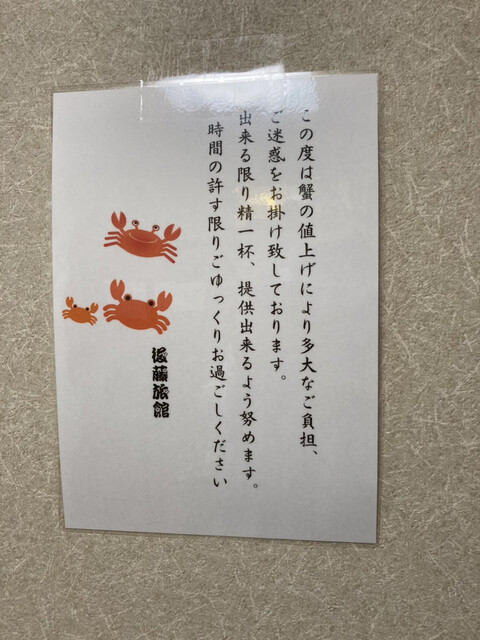 この度は蟹の値上げにより多大なご負担、
ご迷惑をお掛け致しております。
出来る限り精一杯、提供出来るよう努めます。
時間の許す限りごゆっくりお過ごしください
後藤旅館